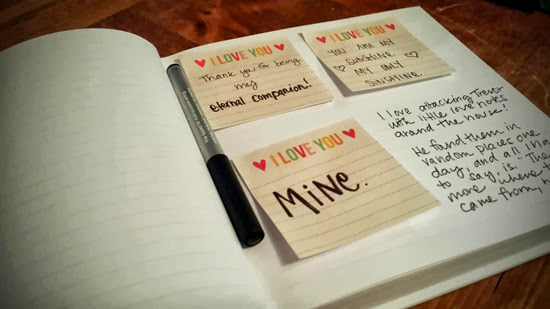 I LOVE YOU
Thank you for being
my
eternal companion!
I LOVE YOU
YOU ARE MY
SUNSHINE
MY ONLY
SUNSHINE.
I LOVE YOU
MINE.
I love attacking Trevor
with little love notes
around the house!
He found them in
random places one
day, and all I ha
to say, is. The
more where t
came from, h